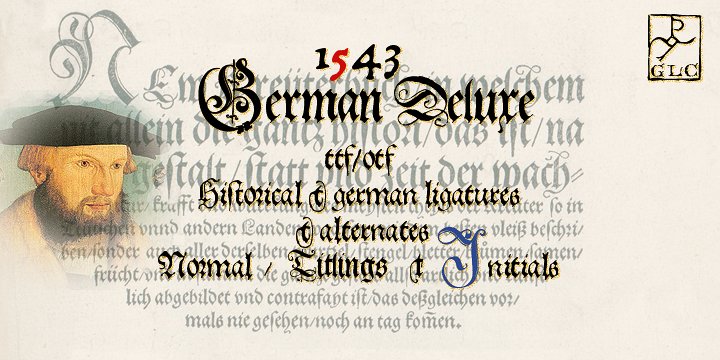 GLC
1543
German Deluxe
ttf/otf
Historical & german ligatures
& alternates
Normal / Titlings & Initials
in welchem
nit allein die gantz histori/das ist/na
gestalt/statt vnd zeit der wach-
krafft vnd Kreüter so in
vnnd andern Landen vleiß beschri-
ben/sonder auch aller derselben stengel/bletter/blumen/samen/
frücht/vnd die gestalt
lich abgebildet vnd contrafayt ist/das deßgleichen vor/
mals nie gesehen/noch an tag kom̃en.